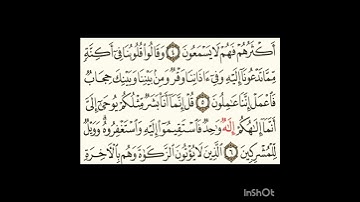 أَكْثَرُهُمْ فَهُمْ لَا يَسْمَعُونَ ٤ وَقَالُوا۟ قُلُوبُنَا فِىٓ أَكِنَّةٍ
مِّمَّا تَدْعُونَآ إِلَيْهِ وَفِىٓ ءَاذَانِنَا وَقْرٌ وَمِنۢ بَيْنِنَا وَبَيْنِكَ حِجَابٌ
فَٱعْمَلْ إِنَّنَا عَٰمِلُونَ ٥ قُلْ إِنَّمَآ أَنَا۠ بَشَرٌ مِّثْلُكُمْ يُوحَىٰٓ إِلَىَّ
أَنَّمَآ إِلَٰهُكُمْ إِلَٰهٌ وَٰحِدٌ فَٱسْتَقِيمُوٓا۟ إِلَيْهِ وَٱسْتَغْفِرُوهُ وَوَيْلٌ
لِّلْمُشْرِكِينَ ٦ ٱلَّذِينَ لَا يُؤْتُونَ ٱلزَّكَوٰةَ وَهُم بِٱلْءَاخِرَةِ
InShOt